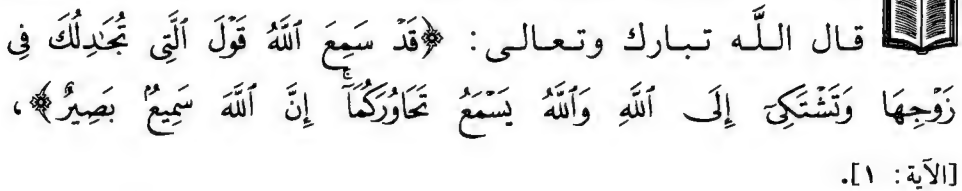 قال اللَّه تبارك وتعالى: ﴿قَدْ سَمِعَ ٱللَّهُ قَوْلَ ٱلَّتِى تُجَٰدِلُكَ فِى
زَوْجِهَا وَتَشْتَكِىٓ إِلَى ٱللَّهِ وَٱللَّهُ يَسْمَعُ تَحَاوُرَكُمَآ ۚ إِنَّ ٱللَّهَ سَمِيعٌۢ بَصِيرٌ﴾،
[الآية: ١].